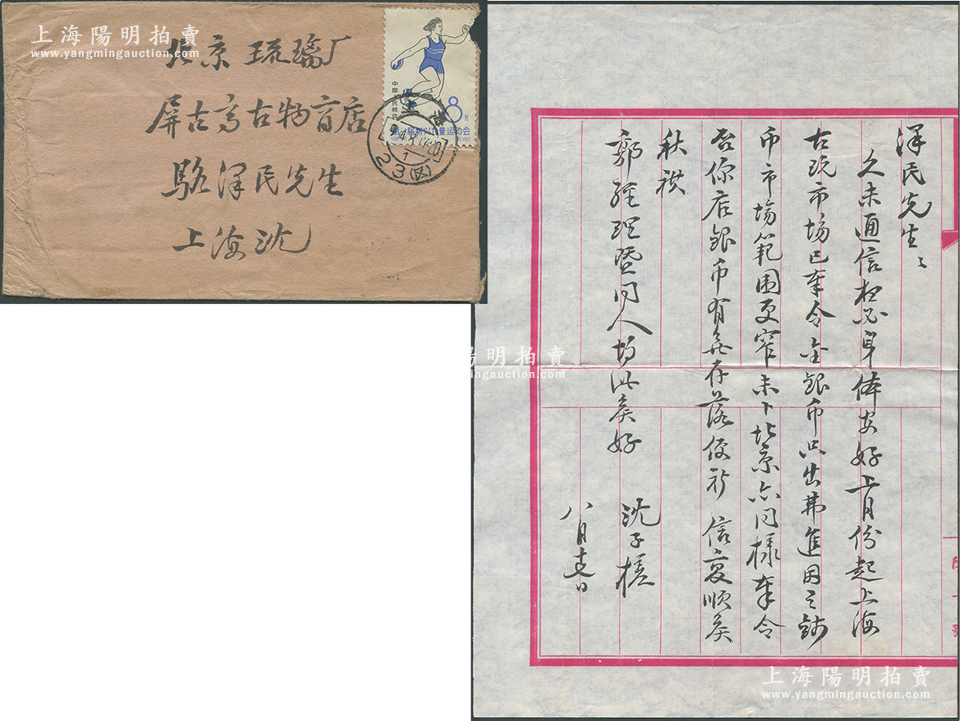 上海陽明拍賣
www.yangmingauction.com
北京琉璃厂
屏古高古物商店
駱澤民先生
上海沈
8分
中国人民邮政
23(区)
澤民先生:
久未通信想必身体安好上月份起上海
古玩市场已奉令金銀币只出弗進因之錢
币市場範围更窄未卜北京亦同樣奉令
否你店銀币有無存落便祈 信复順矣
秋祺
郭經理暨同人均此矣好
沈子槎
八月十七日
上海陽明拍賣
www.yangmingauction.com
上海陽明拍賣
www.yangmingauction.com